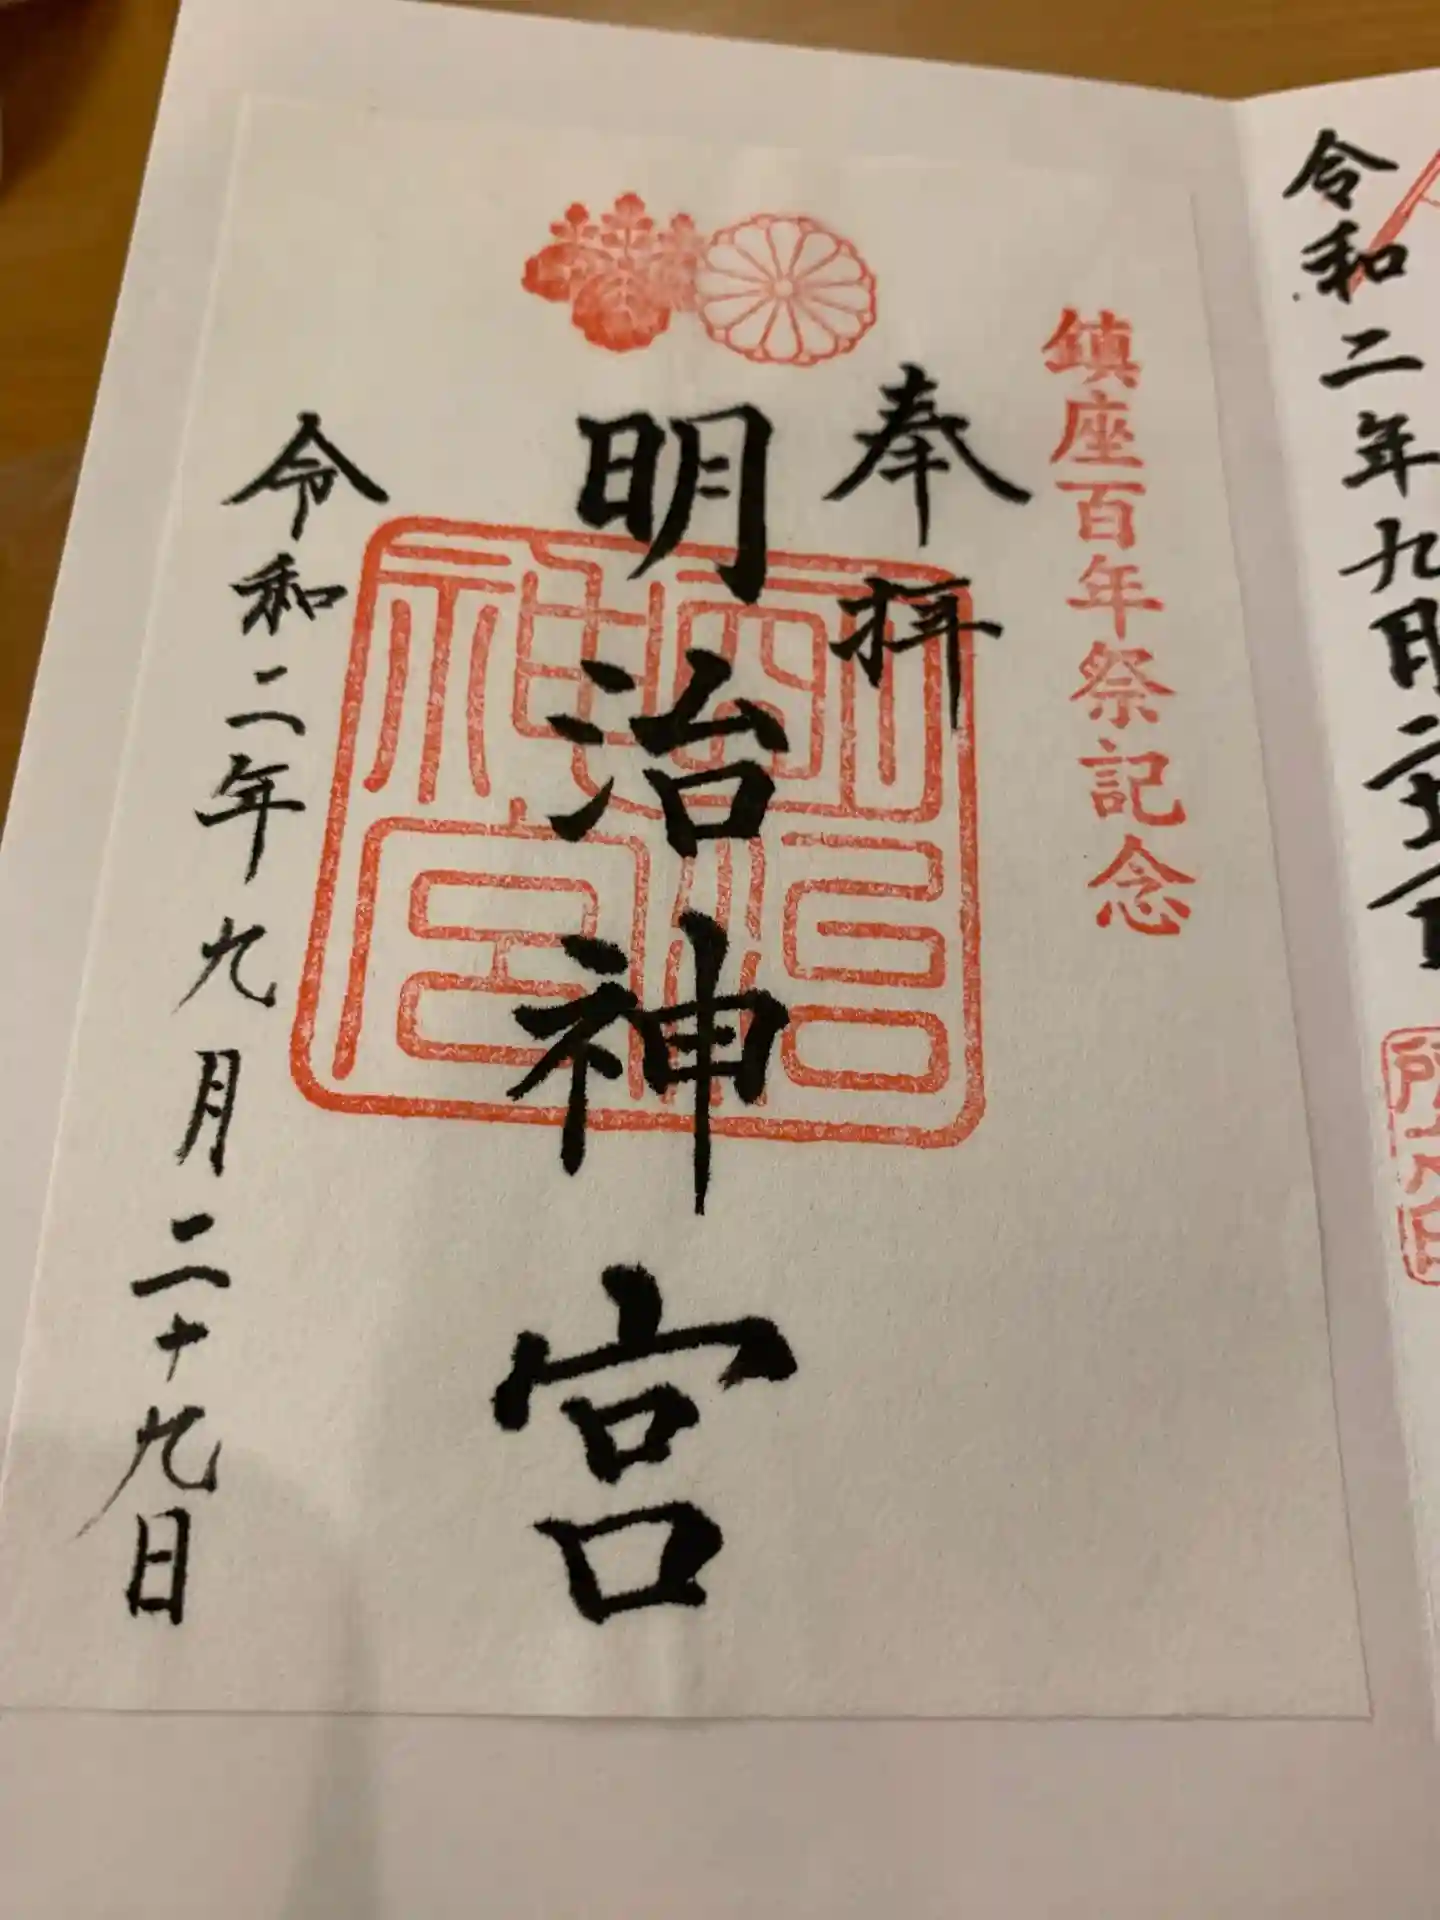 令和二年九月二十五日
鎮座百年祭記念
奉拝
明治神宮
明治神宮
令和二年九月二十九日